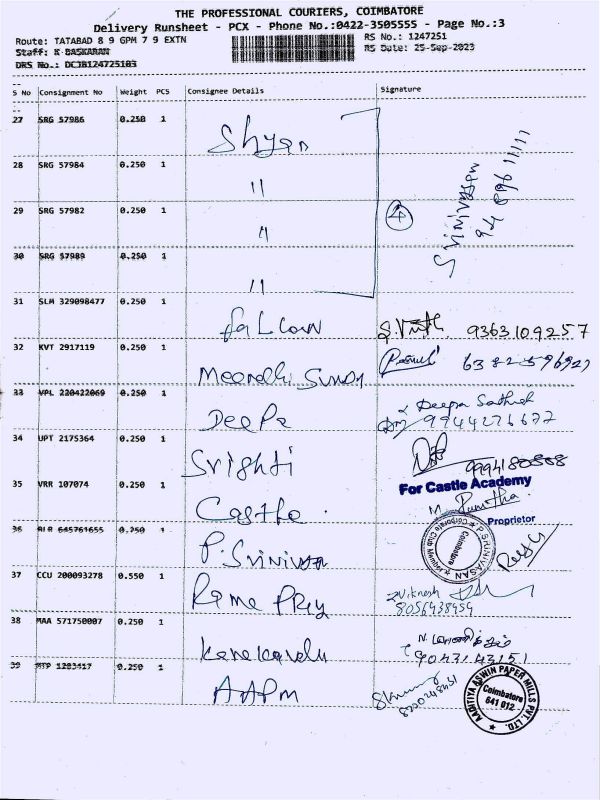 THE PROFESSIONAL COURIERS, COIMBATORE
Delivery Runsheet - PCX - Phone No.:0422-3505555 - Page No.:3
Route: TATABAD 8 9 GPM 7 9 EXTN
RS No.: 1247251
Staff: K BASKARAN
RS Date: 25-Sep-2023
DRS No.: DCJB124725103
S No Consignment No Weight PCS Consignee Details Signature
27 SRG 57986 0.250 1 Shyam
28 SRG 57984 0.250 1 11
29 SRG 57982 0.250 1 11
4
Srinivasan
94 896 11111
30 SRG 57989 0.250 1 11
31 SLM 329098477 0.250 1 9363109257
32 KVT 2917119 0.250 1 Meenakshi Sundar
33 VPL 220422069 0.250 1 Deepa
Deepa Sathish
9944276677
34 UPT 2175364 0.250 1 Srishti
9994180588
35 VRR 107074 0.250 1 Castle
For Castle Academy
M. Punitha
Proprietor
36 645761655 0.250 1 P. Srinivasan
P. SRINIVASAN
Corporate Club Member
Coimbatore
37 CCU 200093278 0.550 1 Rame Prey
Viknesh
8056438454
38 MAA 571750007 0.250 1 Kanakavalu
9043143151
39 MTP 1283417 0.250 1 AAPM
8200248451
AADITYA ASWIN PAPER MILLS PVT. LTD.
Coimbatore
641 012